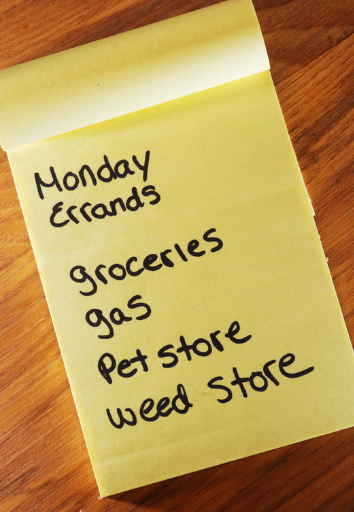 Monday
Errands
groceries
gas
Pet store
weed store